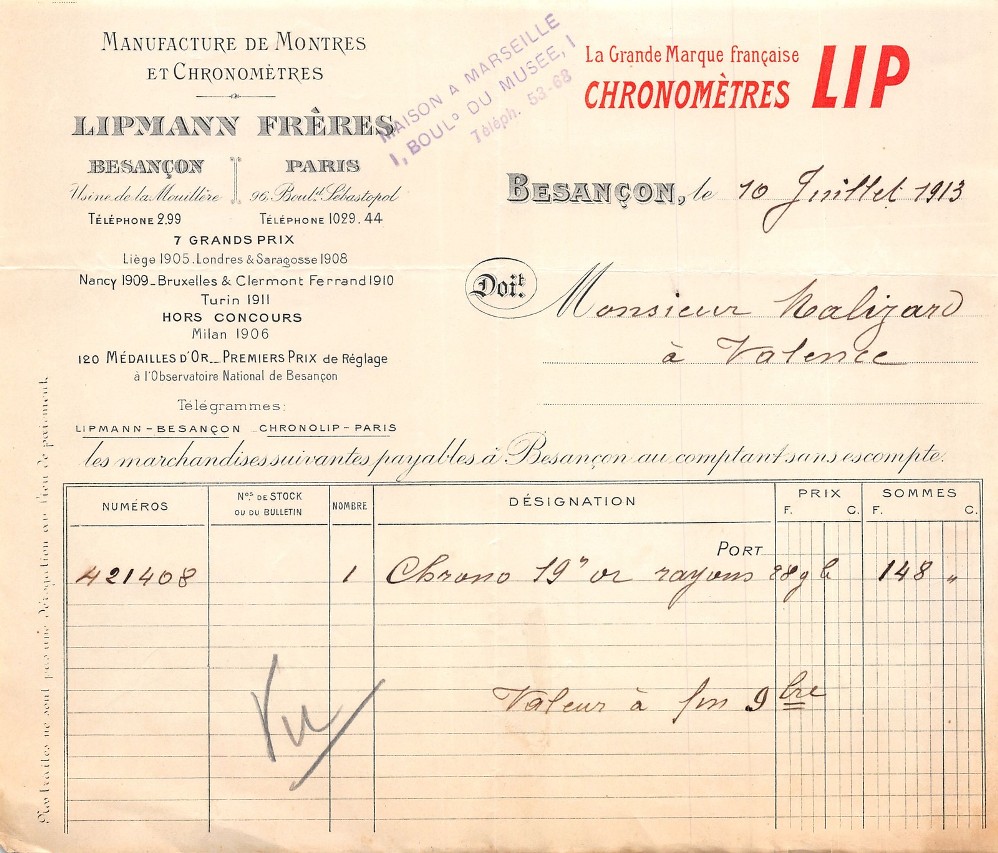 MANUFACTURE DE MONTRES
ET CHRONOMÈTRES
LIPMANN FRÈRES
BESANÇON PARIS
Usine de la Mouillère 96, Boul.d Sébastopol
TÉLÉPHONE 2.99 TÉLÉPHONE 1029.44
7 GRANDS PRIX
Liège 1905. Londres & Saragosse 1908
Nancy 1909_Bruxelles & Clermont Ferrand 1910
Turin 1911
HORS CONCOURS
Milan 1906
120 MÉDAILLES D'OR__PREMIERS PRIX de Réglage
à l'Observatoire National de Besançon
Télégrammes:
LIPMANN-BESANÇON CHRONOLIP-PARIS
MAISON A MARSEILLE
1, BOUL.D DU MUSEE, 1
Téléph. 53-68
La Grande Marque française
CHRONOMÈTRES LIP
BESANÇON, le 10 Juillet 1913
Doit. Monsieur Malizard
à Valence
les marchandises suivantes payables à Besançon au comptant sans escompte.
NUMÉROS Nos DE STOCK OU DU BULLETIN NOMBRE DÉSIGNATION PRIX F. C. SOMMES F. C.
PORT
421408 1 Chrono 19''' or rayons 28g b 148 "
Valeur à fin 9bre
Vu
Nos traites ne sont pas une dérogation au lieu de paiement.